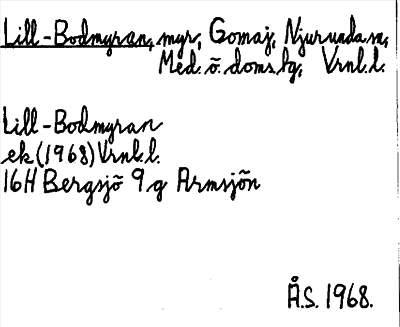 Lill-Bodmyran, myr, Gomaj, Njurunda sn,
Med. ö. doms.hg, Vrnl.l.
Lill-Bodmyran
ek (1968) Vrnl.l.
16H Bergsjö 9 g Armsjön
Å.S. 1968.